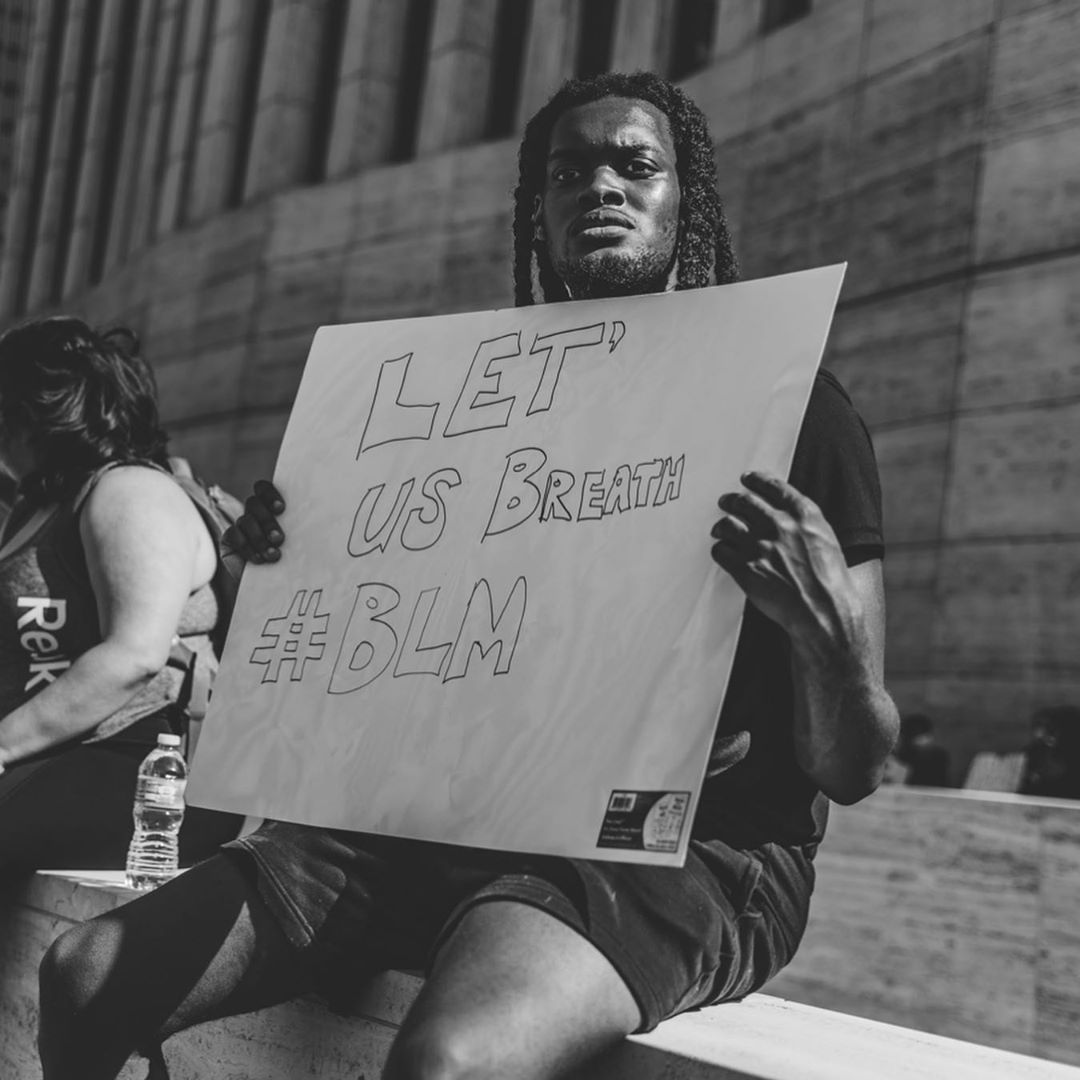 LET'
US BREATH
#BLM
Relx